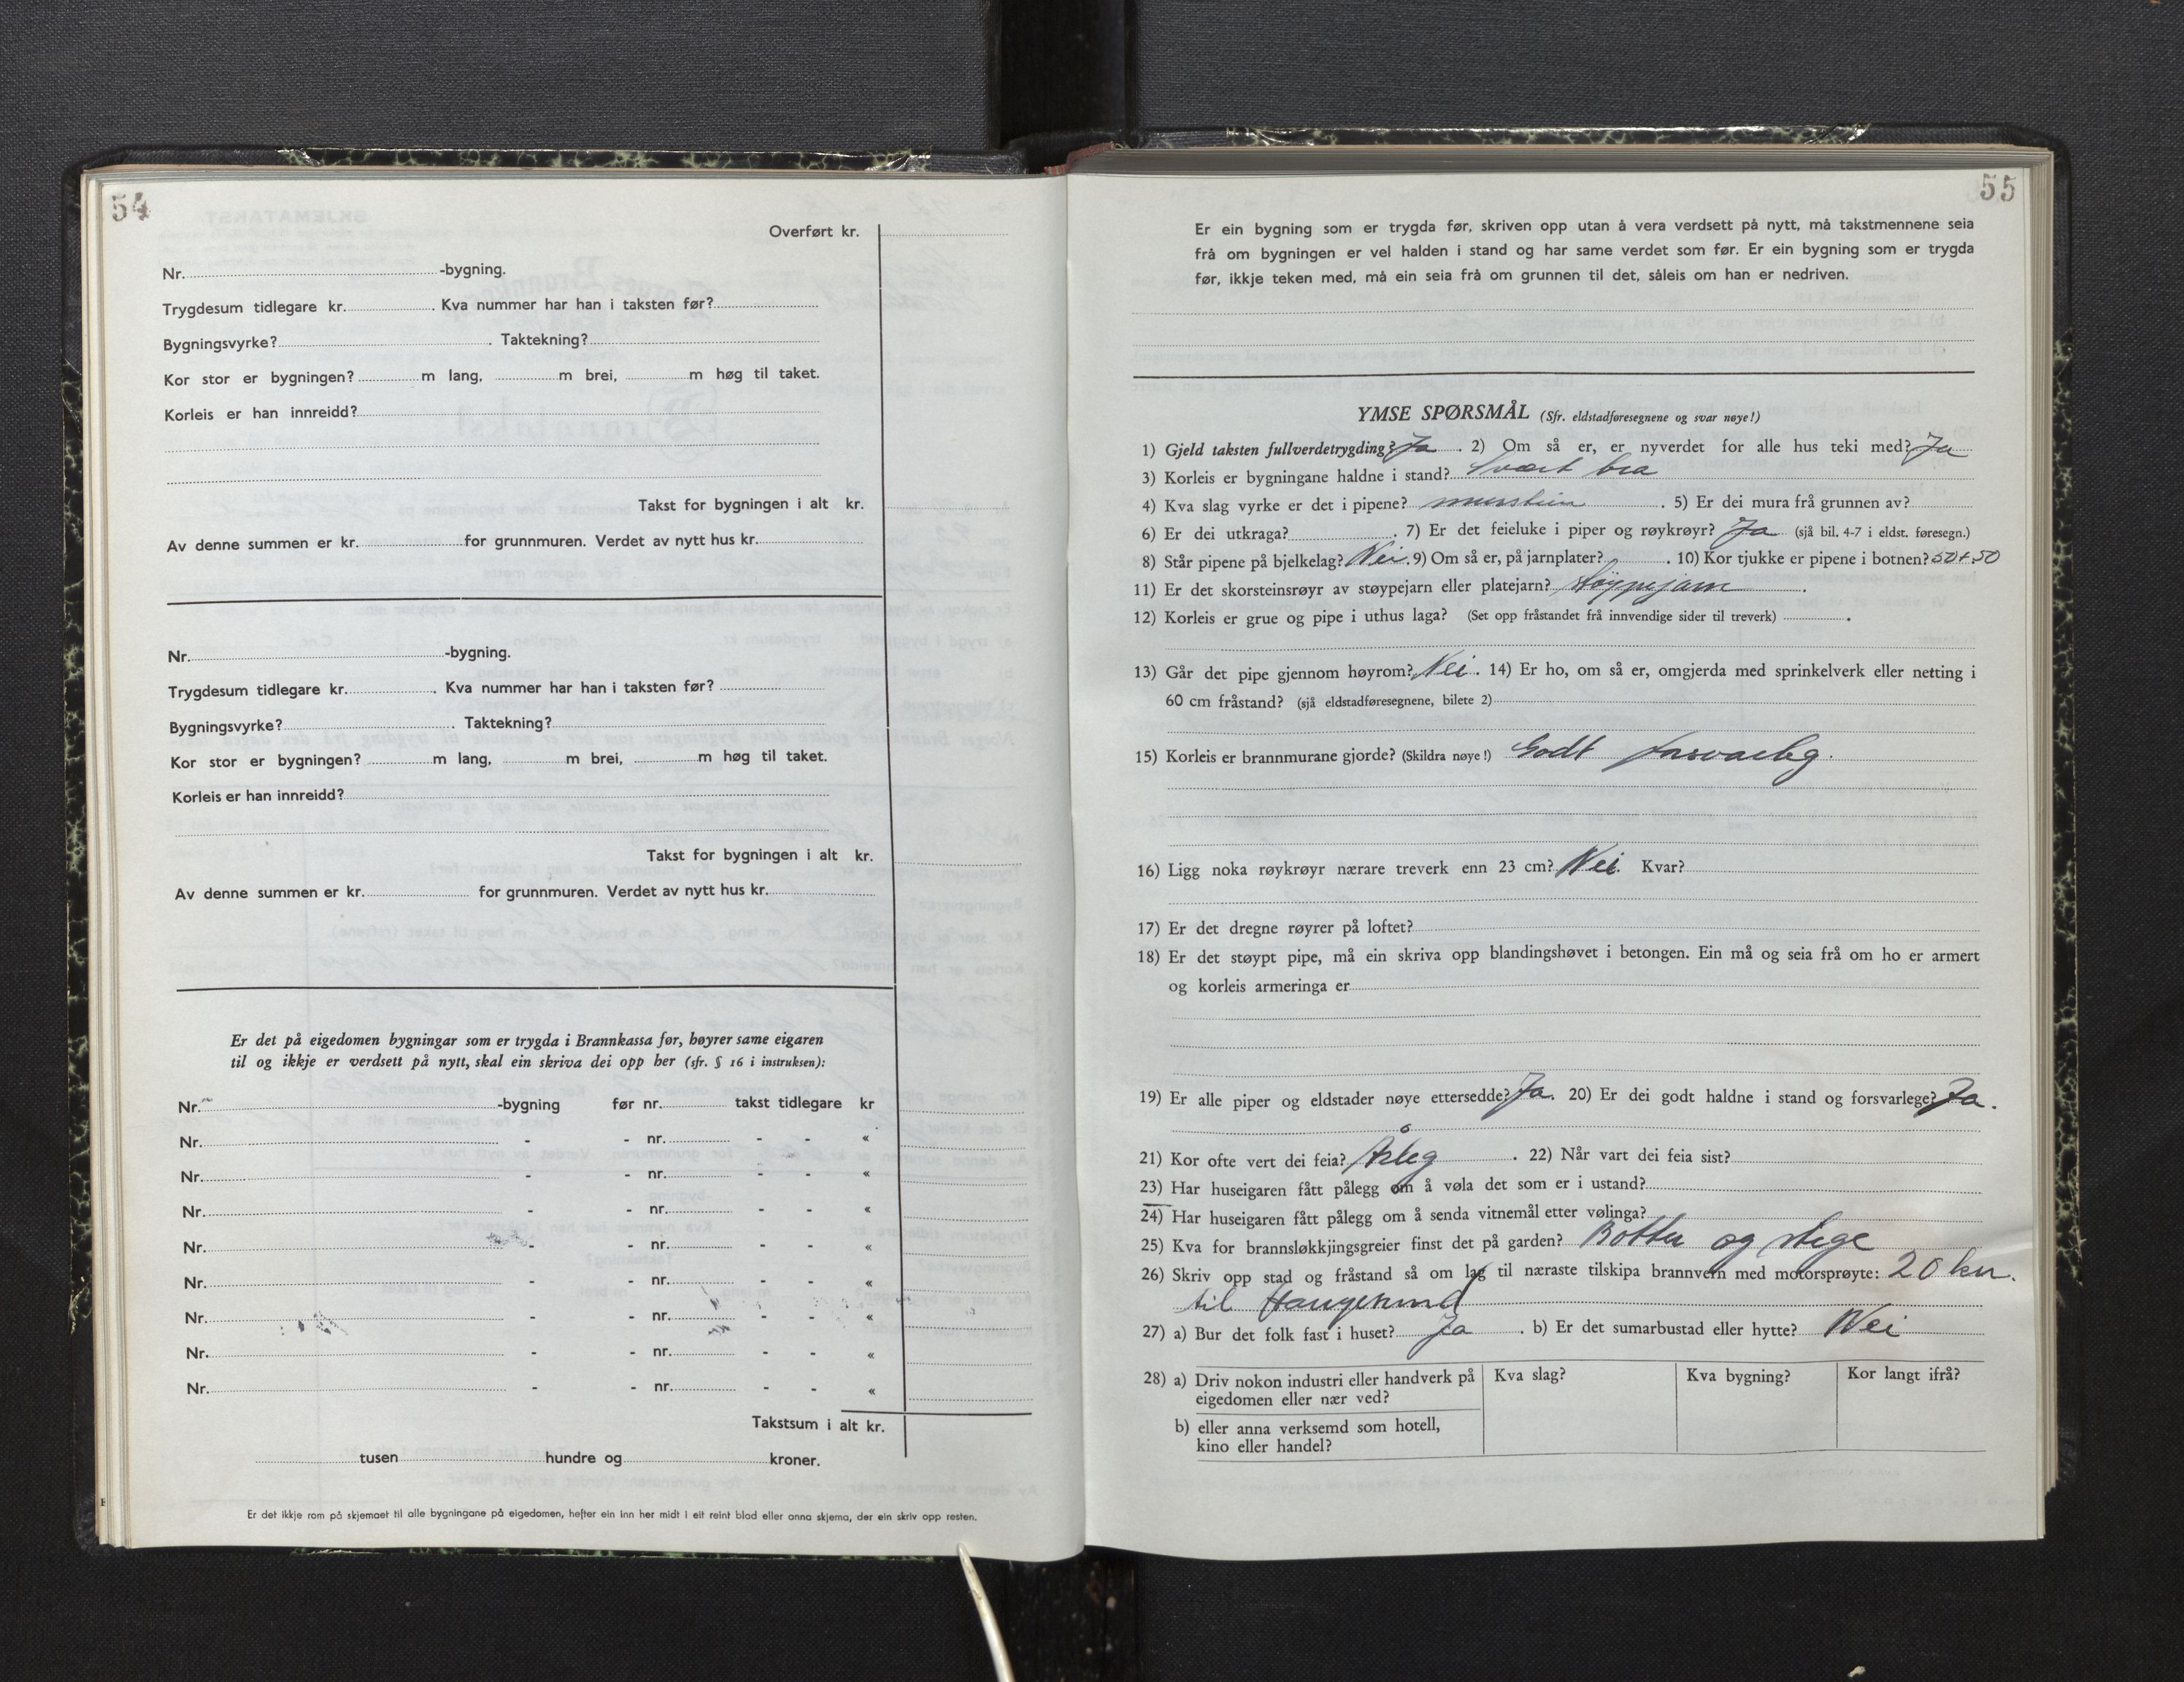 54
Overført kr.
Nr. -bygning.
Trygdesum tidlegare kr. . Kva nummer har han i taksten før?
Bygningsvyrke? . Taktekning?
Kor stor er bygningen? m lang, m brei, m høg til taket.
Korleis er han innreidd?
Takst for bygningen i alt kr.
Av denne summen er kr. for grunnmuren. Verdet av nytt hus kr.
Nr. -bygning.
Trygdesum tidlegare kr. . Kva nummer har han i taksten før?
Bygningsvyrke? . Taktekning?
Kor stor er bygningen? m lang, m brei, m høg til taket.
Korleis er han innreidd?
Takst for bygningen i alt kr.
Av denne summen er kr. for grunnmuren. Verdet av nytt hus kr.
Er det på eigedomen bygningar som er trygda i Brannkassa før, høyrer same eigaren
til og ikkje er verdsett på nytt, skal ein skriva dei opp her (sfr. § 16 i instruksen):
Nr. -bygning før nr. takst tidlegare kr
Nr. - - nr. - - «
Nr. - - nr. - - «
Nr. - - nr. - - «
Nr. - - nr. - - «
Nr. - - nr. - - «
Nr. - - nr. - - «
Nr. - - nr. - - «
Nr. - - nr. - - «
Takstsum i alt kr.
tusen hundre og kroner.
Er det ikkje rom på skjemaet til alle bygningane på eigedomen, hefter ein inn her midt i eit reint blad eller anna skjema, der ein skriv opp resten.
55
Er ein bygning som er trygda før, skriven opp utan å vera verdsett på nytt, må takstmennene seia
frå om bygningen er vel halden i stand og har same verdet som før. Er ein bygning som er trygda
før, ikkje teken med, må ein seia frå om grunnen til det, såleis om han er nedriven.
YMSE SPØRSMÅL (Sfr. eldstadføresegnene og svar nøye!)
1) Gjeld taksten fullverdetrygding? Ja . 2) Om så er, er nyverdet for alle hus teki med? Ja
3) Korleis er bygningane haldne i stand? Svært bra
4) Kva slag vyrke er det i pipene? murstein . 5) Er dei mura frå grunnen av?
6) Er dei utkraga? . 7) Er det feieluke i piper og røykrøyr? Ja (sjå bil. 4-7 i eldst. føresegn.)
8) Står pipene på bjelkelag? Nei. 9) Om så er, på jarnplater? . 10) Kor tjukke er pipene i botnen? 50+50
11) Er det skorsteinsrøyr av støypejarn eller platejarn? Støypejarn .
12) Korleis er grue og pipe i uthus laga? (Set opp fråstandet frå innvendige sider til treverk) .
13) Går det pipe gjennom høyrom? Nei . 14) Er ho, om så er, omgjerda med sprinkelverk eller netting i
60 cm fråstand? (sjå eldstadføresegnene, bilete 2)
15) Korleis er brannmurane gjorde? (Skildra nøye!) Godt forsvarleg.
16) Ligg noka røykrøyr nærare treverk enn 23 cm? Nei. Kvar?
17) Er det dregne røyrer på loftet?
18) Er det støypt pipe, må ein skriva opp blandingshøvet i betongen. Ein må og seia frå om ho er armert
og korleis armeringa er
19) Er alle piper og eldstader nøye ettersedde? Ja. 20) Er dei godt haldne i stand og forsvarlege? Ja.
21) Kor ofte vert dei feia? Årleg . 22) Når vart dei feia sist?
23) Har huseigaren fått pålegg om å vøla det som er i ustand?
24) Har huseigaren fått pålegg om å senda vitnemål etter vølinga?
25) Kva for brannsløkkjingsgreier finst det på garden? Bøtter og stege
26) Skriv opp stad og fråstand så om lag til næraste tilskipa brannvern med motorsprøyte: 20 km.
til Haugesund
27) a) Bur det folk fast i huset? Ja . b) Er det sumarbustad eller hytte? Nei
28) a) Driv nokon industri eller handverk på Kva slag? Kva bygning? Kor langt ifrå?
eigedomen eller nær ved?
b) eller anna verksemd som hotell,
kino eller handel?